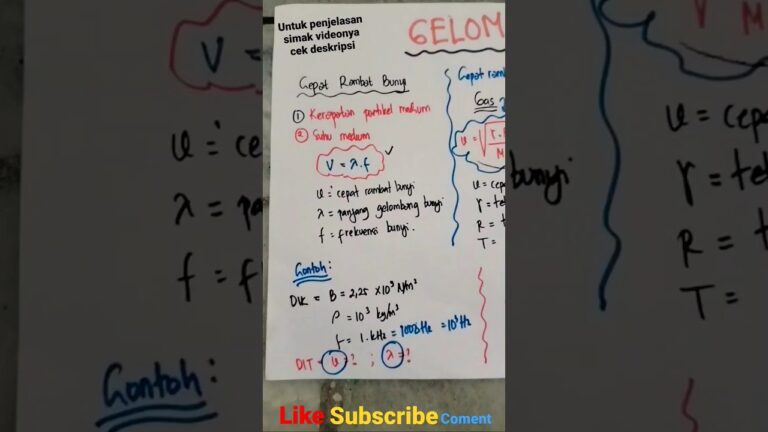 Untuk penjelasan
simak videonya
cek deskripsi
GELOM
Cepat Rambat Bunyi
① Kerapatan partikel medium
② Suhu medium
V = λ.f
v = cepat rambat bunyi
λ = panjang gelombang bunyi
f = frekuensi bunyi.
Contoh:
DIK = B = 2,25 × 10⁹ N/m²
ρ = 10³ kg/m³
f = 1 kHz = 1000 Hz = 10³ Hz
DIT = v = ? ; λ = ?
Cepat ramb
Gas
v =
M
v = cepa
γ = tet
R = t
T =
V =
v = ce
λ = pan
f = f
Contoh:
v = cepa
bunyi
γ = tet
R = t
T =
Like Subscribe Coment